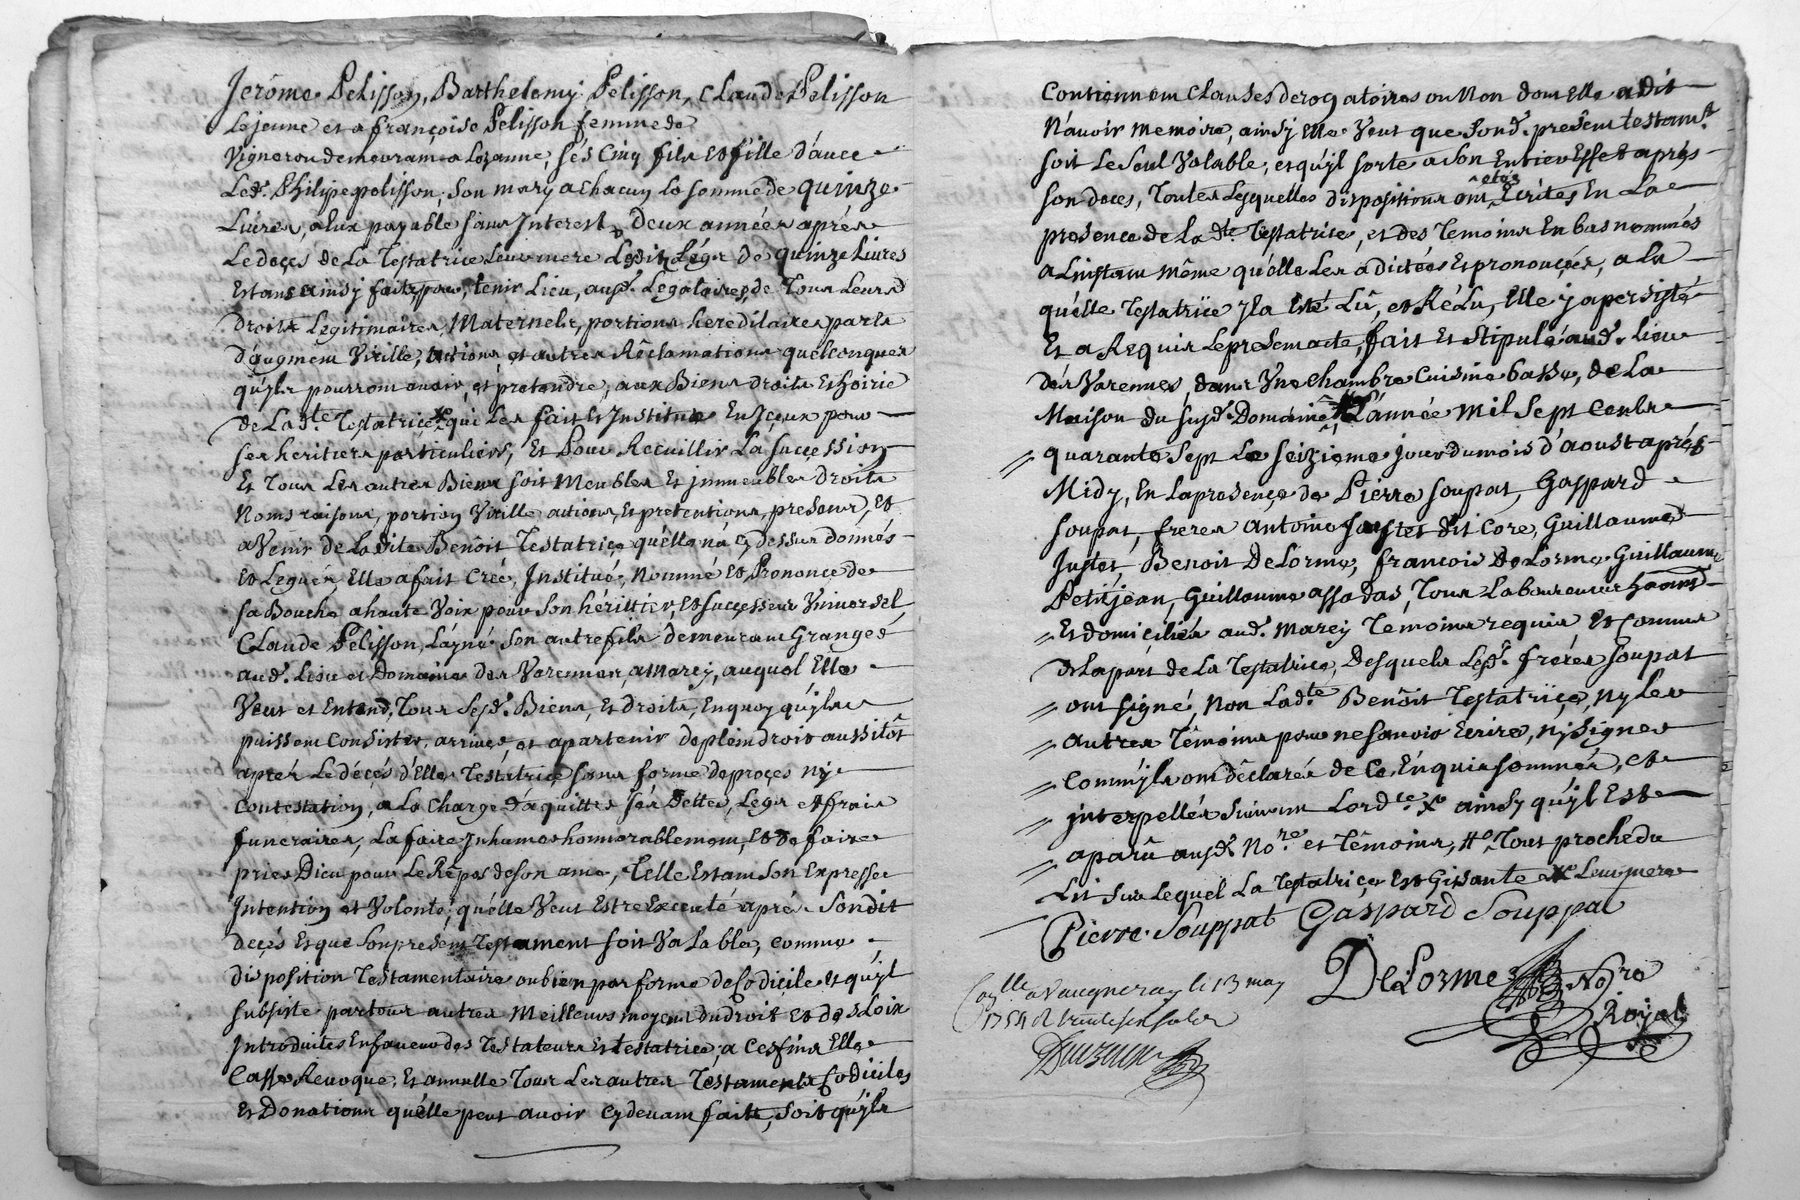 Jerôme Pelisson, Barthelemy Pelisson, Claude Pelisson
Lejeune et a françoise Pelisson femme de
Vigneron demeurant a Lozanne, ses Cinq fils et fille d'avec
Led. Philipe pelisson, son mary a chacun la somme de quinze
Livres, a Eux payable sans Interest, Deux années après
Le deçes de La Testatrice Leur mere Ledit Légs de quinze Livres
Estant ainsy fait, pour tenir Lieu, ausd. Légataires, de Tous Leurs
droits Legitimaires Maternels, portions hereditaires parts
d'augment Virille, actions et autres Réclamations quelconques
qu'yls pourront avoir, et pretendre, aux Biens droits Et hoirie
de Lad.te Testatrice, qui Les fait et Institue En Yceux pour
ses heritiers particuliers, Et Pour Recuillir La succession
Et Tous Les autres Biens soit Meubles Et jmmeubles droits
Noms raisons, portion Virille actions, Et pretentions, presens, Et
a Venir de Ladite Benoît Testatrice qu'elle n'a cy dessus donnés
Et Legués, Elle a fait Créé, Institué, Nommé Et Prononçé de
sa Bouche a haute Voix pour Son hérittier Et successeur Vniversel,
Claude Pelisson, L'ayné son autre fils demeurant Granger
aud. Lieu et Domaine des Varennes, a Marcy, auquel Elle
Veut et Entend, Tous sesd. Biens, Et droits, En quoy qu'yls
puissent Consister, arriver, et apartenir de plein droit aussitôt
après Le déçés d'Elle Testatrice, sans forme de proçes ny
Contestation, a La Charge d'aquitter ses Dettes, Legs et frais
funeraires, La faire Inhumer honnorablement, Et De faire
prier Dieu pour Le Repos de son ame, Telle Estant son Expresse
Intention et Volonté, qu'elle Veut Estre Executé après Son dit
deçés Et que Son present Testament soit Valable, comme
disposition Testamentaire ou bien par forme de Codicile et qu'yl
subsiste par tous autres Meilleurs moyens du droit, Et des Loix
Introduites En faveur des Testateurs Et testatrice, a Ces fins Elle
Casse Revoque, Et annulle Tous Les autres Testaments Codiciles
Et Donations qu'elle peut avoir cy devant faits, soit qu'yls
Contiennent Clauses derogatoires ou Non dont Elle a dit
N'avoir memoire, ainsy Elle Veut que Sond. present testam.t
soit Le Seul Valable, et qu'yl sorte a Son Entier Effet après
son deçes, Toutes Lesquelles dispositions ont été Ecrites En La
presence de La d.te Testatrice, et des Temoins En bas nommés
a L'instant même qu'elle Les a dictées Et prononçées, a La
qu'elle Testatriçe Yla Esté Lû, et RéLu, Elle y a persisté
Et a Requis Le present acte, fait Et Stipulé aud. Lieu
des Varennes, dans Vne Chambre Cuisine basse, de La
Maison du susd. Domaine L'année Mil Sept Cents
quarante Sept Le seizieme jour du mois d'aoust après
Midy, En La presençe de Pierre Soupat, Gaspard
Soupat, freres Antoine Justet dit Core, Guillaume
Justet Benoit DeLorme, François DeLorme Guillaume
Petitjean, Guillaume assadas, Tous Laboureurs
Et domiciliés aud. Marcy Temoins requis Et Connus
de La part de La Testatrice, Desquels Lesd. fréres Soupat
ont signé, Non Lad.te Benoît Testatriçe, ny Les
autres Témoins pour ne Sçavoir Ecrire, ny signer
Comm'yls ont déclarés de Ce Enquis sommés, et
interpellés suivant Lord.ce ainsy qu'yl Est
aparû ausd. No.re et Témoins, Tout proche du
Lit sur Lequel La Testatrice Est Gisante Leur mere
Pierre Souppat Gaspard Souppat
DeLorme No.re
Royal
a Vaugneray le 13 may
1754